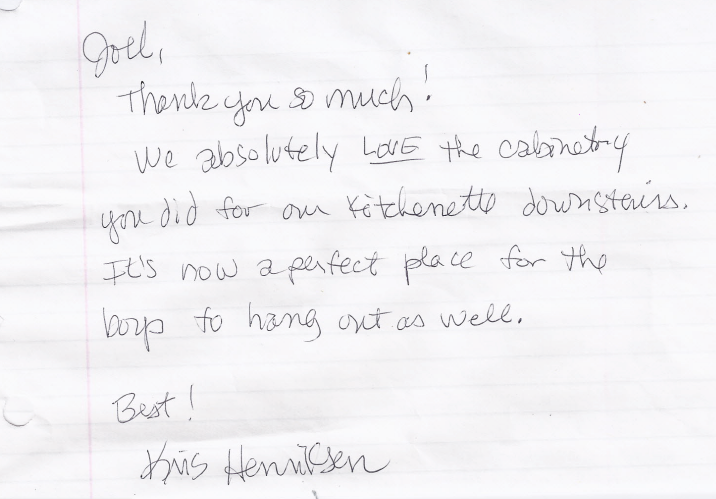 Joel,
Thank you so much!
We absolutely LOVE the cabinetry
you did for our kitchenette downstairs.
It's now a perfect place for the
boys to hang out as well.
Best!
Kris Henriksen